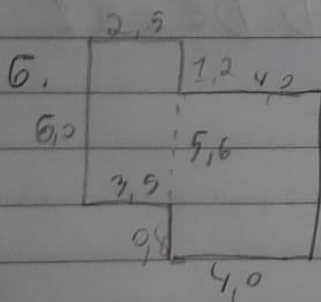 2,5
6. 1,2 4,0
6,0 5,6
3,5
0,8
4,0